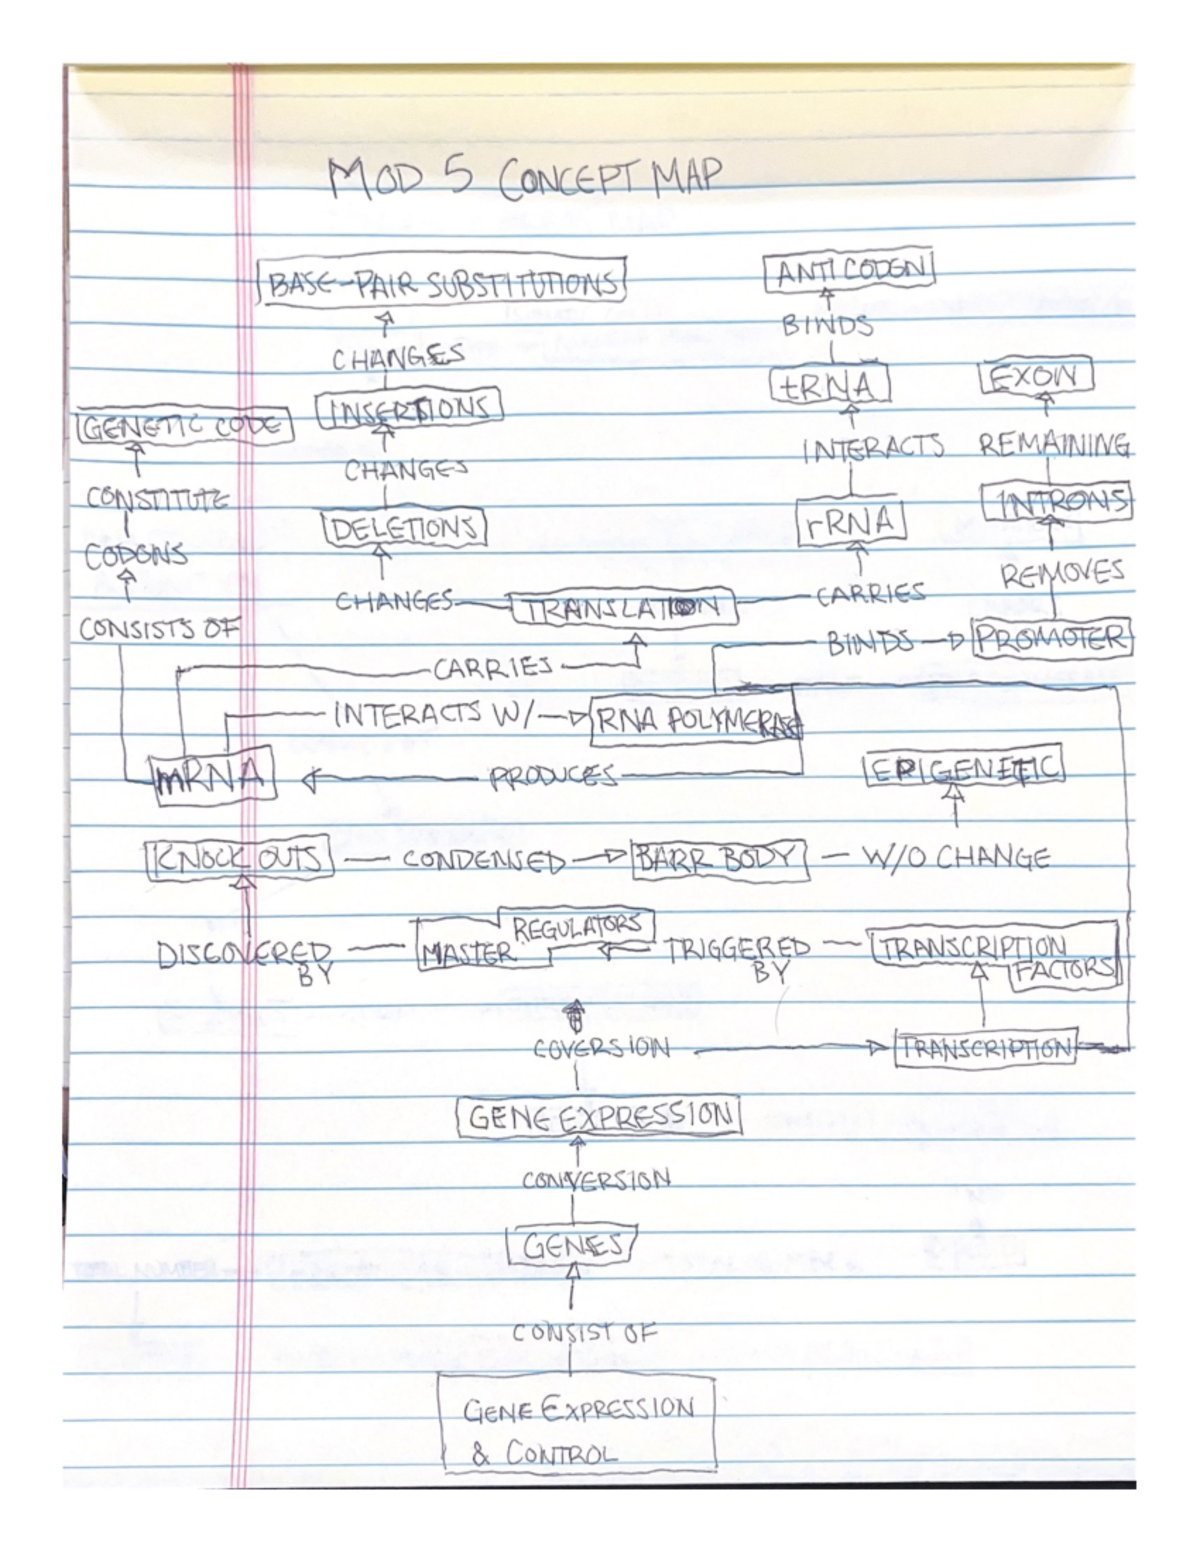 MOD 5 CONCEPT MAP
BASE-PAIR SUBSTITUTIONS
ANTICODON
BINDS
CHANGES
tRNA
EXON
INSERTIONS
GENETIC CODE
INTERACTS
REMAINING
CHANGES
CONSTITUTE
INTRONS
DELETIONS
rRNA
CODONS
REMOVES
CHANGES
TRANSLATION
CARRIES
CONSISTS OF
BINDS
PROMOTER
CARRIES
INTERACTS W/
RNA POLYMERASE
mRNA
PRODUCES
EPIGENETIC
KNOCK OUTS
CONDENSED
BARR BODY
W/O CHANGE
DISCOVERED
BY
MASTER
REGULATORS
TRIGGERED
BY
TRANSCRIPTION
FACTORS
COVERSION
TRANSCRIPTION
GENE EXPRESSION
CONVERSION
GENES
CONSIST OF
GENE EXPRESSION
& CONTROL